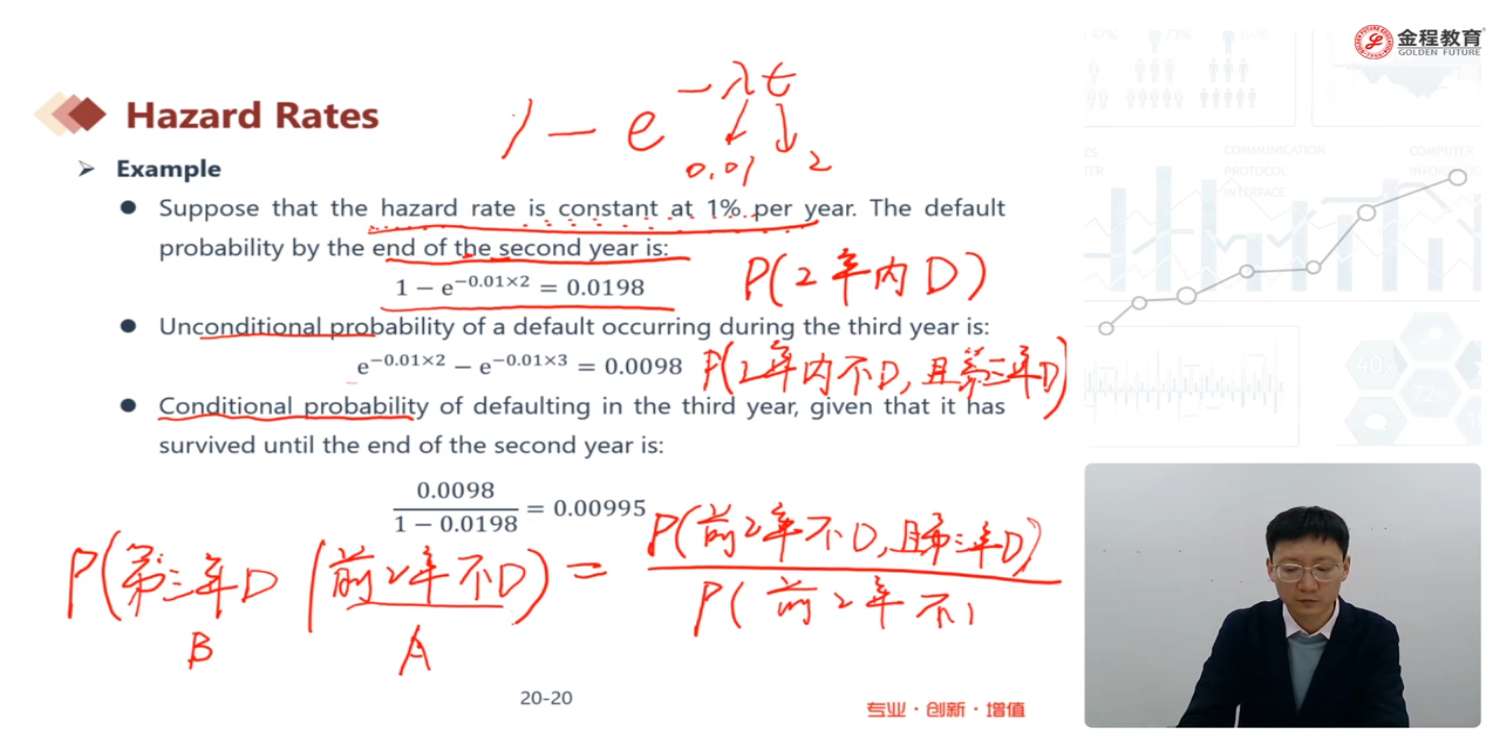 金程教育
GOLDEN FUTURE
Hazard Rates
1 - e^{-λt}
0.01 2
Example
Suppose that the hazard rate is constant at 1% per year. The default
probability by the end of the second year is:
1 − e^{−0.01×2} = 0.0198
P(2年内D)
Unconditional probability of a default occurring during the third year is:
e^{−0.01×2} − e^{−0.01×3} = 0.0098
P(2年内不D,且第三年D)
Conditional probability of defaulting in the third year, given that it has
survived until the end of the second year is:
0.0098
1 − 0.0198
= 0.00995
P(第三年D|前2年不D) =
P(前2年不D,且第三年D)
P(前2年不
B
A
20-20
专业·创新·增值
COMMUNICATION
PROTOCOL
INTERFACE
COMPUTER
40%
72%